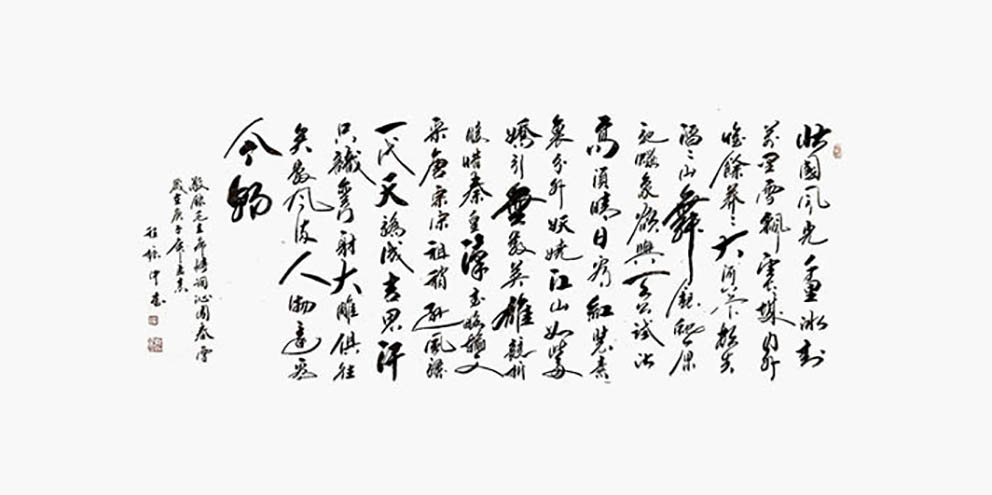 北國風光千里冰封
萬里雪飄望長城內外
惟餘莽々大河上下頓失
滔々山舞銀蛇原
馳蠟象欲與天公試比
高須晴日看紅裝素
裹分外妖嬈江山如此多
嬌引無數英雄競折
腰惜秦皇漢武略輸文
采唐宗宋祖稍遜風騷
一代天驕成吉思汗
只識彎弓射大雕俱往
矣數風流人物還看
今朝
敬錄毛主席詩詞沁園春雪
歲在庚子